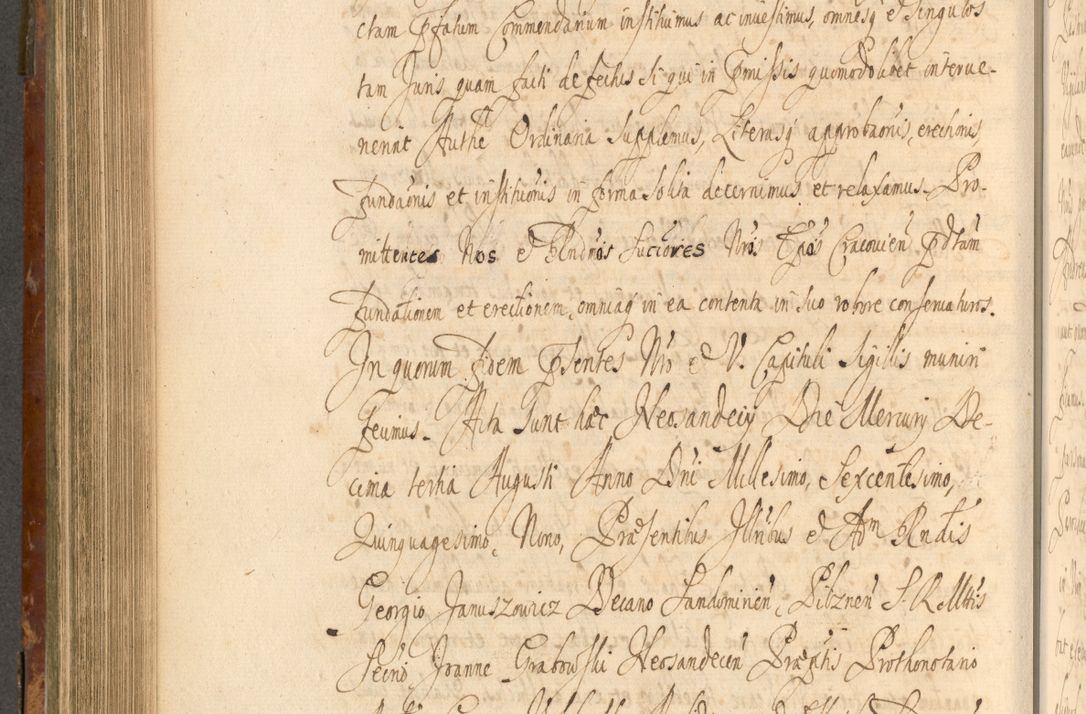 ctam Pfatum Commendarium instituimus ac inuestimus, omnesq et Singulos
tam Juris quam facti defectus Si qui in Pmissis quomodolibet interue-
nerint Authte Ordinaria Supplemus, Literasq approbaonis, erectionis,
fundaonis et institutionis in forma solita decernimus et relaxamus. Pro-
mittentes Nos et Rendros Succores Nros Epos Cracouien Pdtam
fundationem et erectionem, omniaq in ea contenta in Suo robore conseruaturos.
In quorum fidem Psentes Nro et V. Capituli Sigillis muniri
fecimus. Acta Sunt haec Neosandeciy Die Mercury De-
cima tertia Augusti Anno Dni Millesimo, Sexcentesimo,
Quinquagesimo, Nono, Praesentibus Illribus et Adm Rndis
Georgio Januszowicz Decano Sandomirien, Pilznen S. R. Mttis
Secrio Joanne Grabowski Neosandecen Praeptis Prothonotario